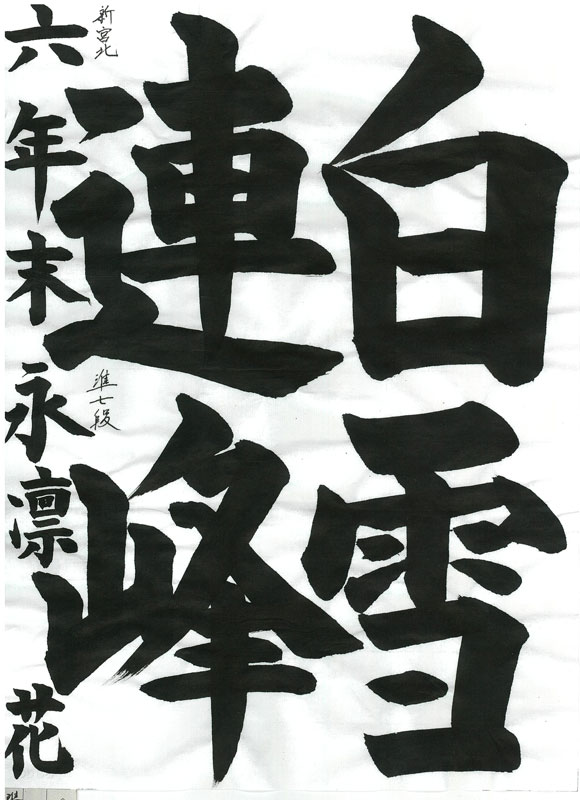 白雪
連峰
新宮北
準七段
六年末永凛花